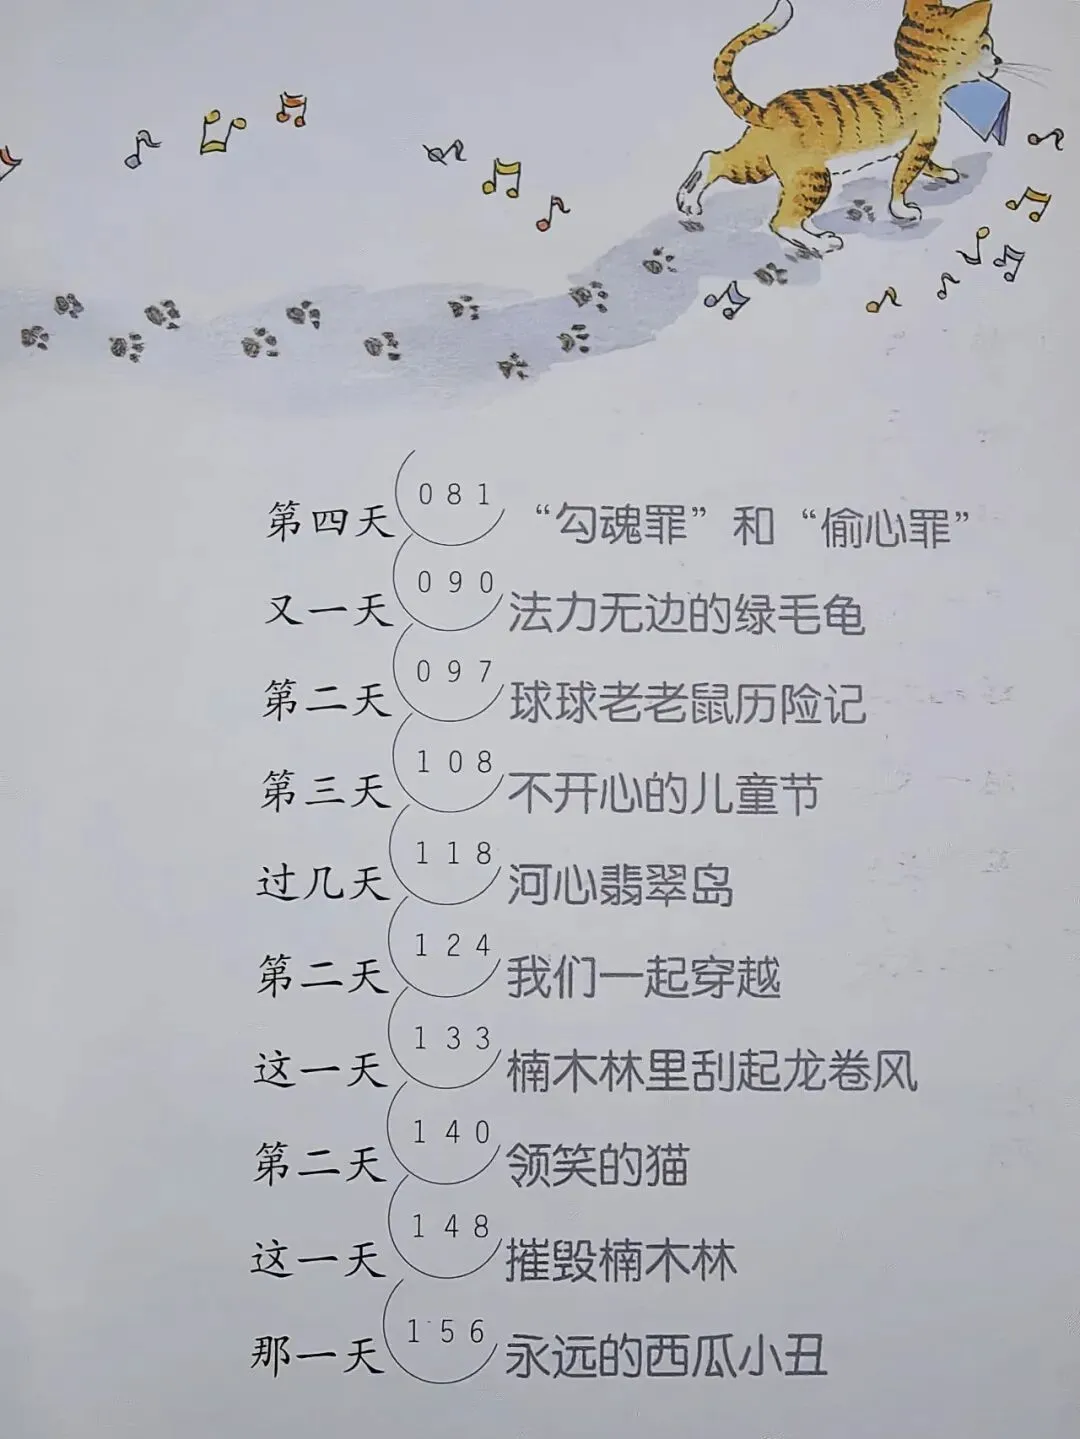 第四天 081 “勾魂罪”和“偷心罪”
又一天 090 法力无边的绿毛龟
第二天 097 球球老老鼠历险记
第三天 108 不开心的儿童节
过几天 118 河心翡翠岛
第二天 124 我们一起穿越
这一天 133 楠木林里刮起龙卷风
第二天 140 领笑的猫
这一天 148 摧毁楠木林
那一天 156 永远的西瓜小丑